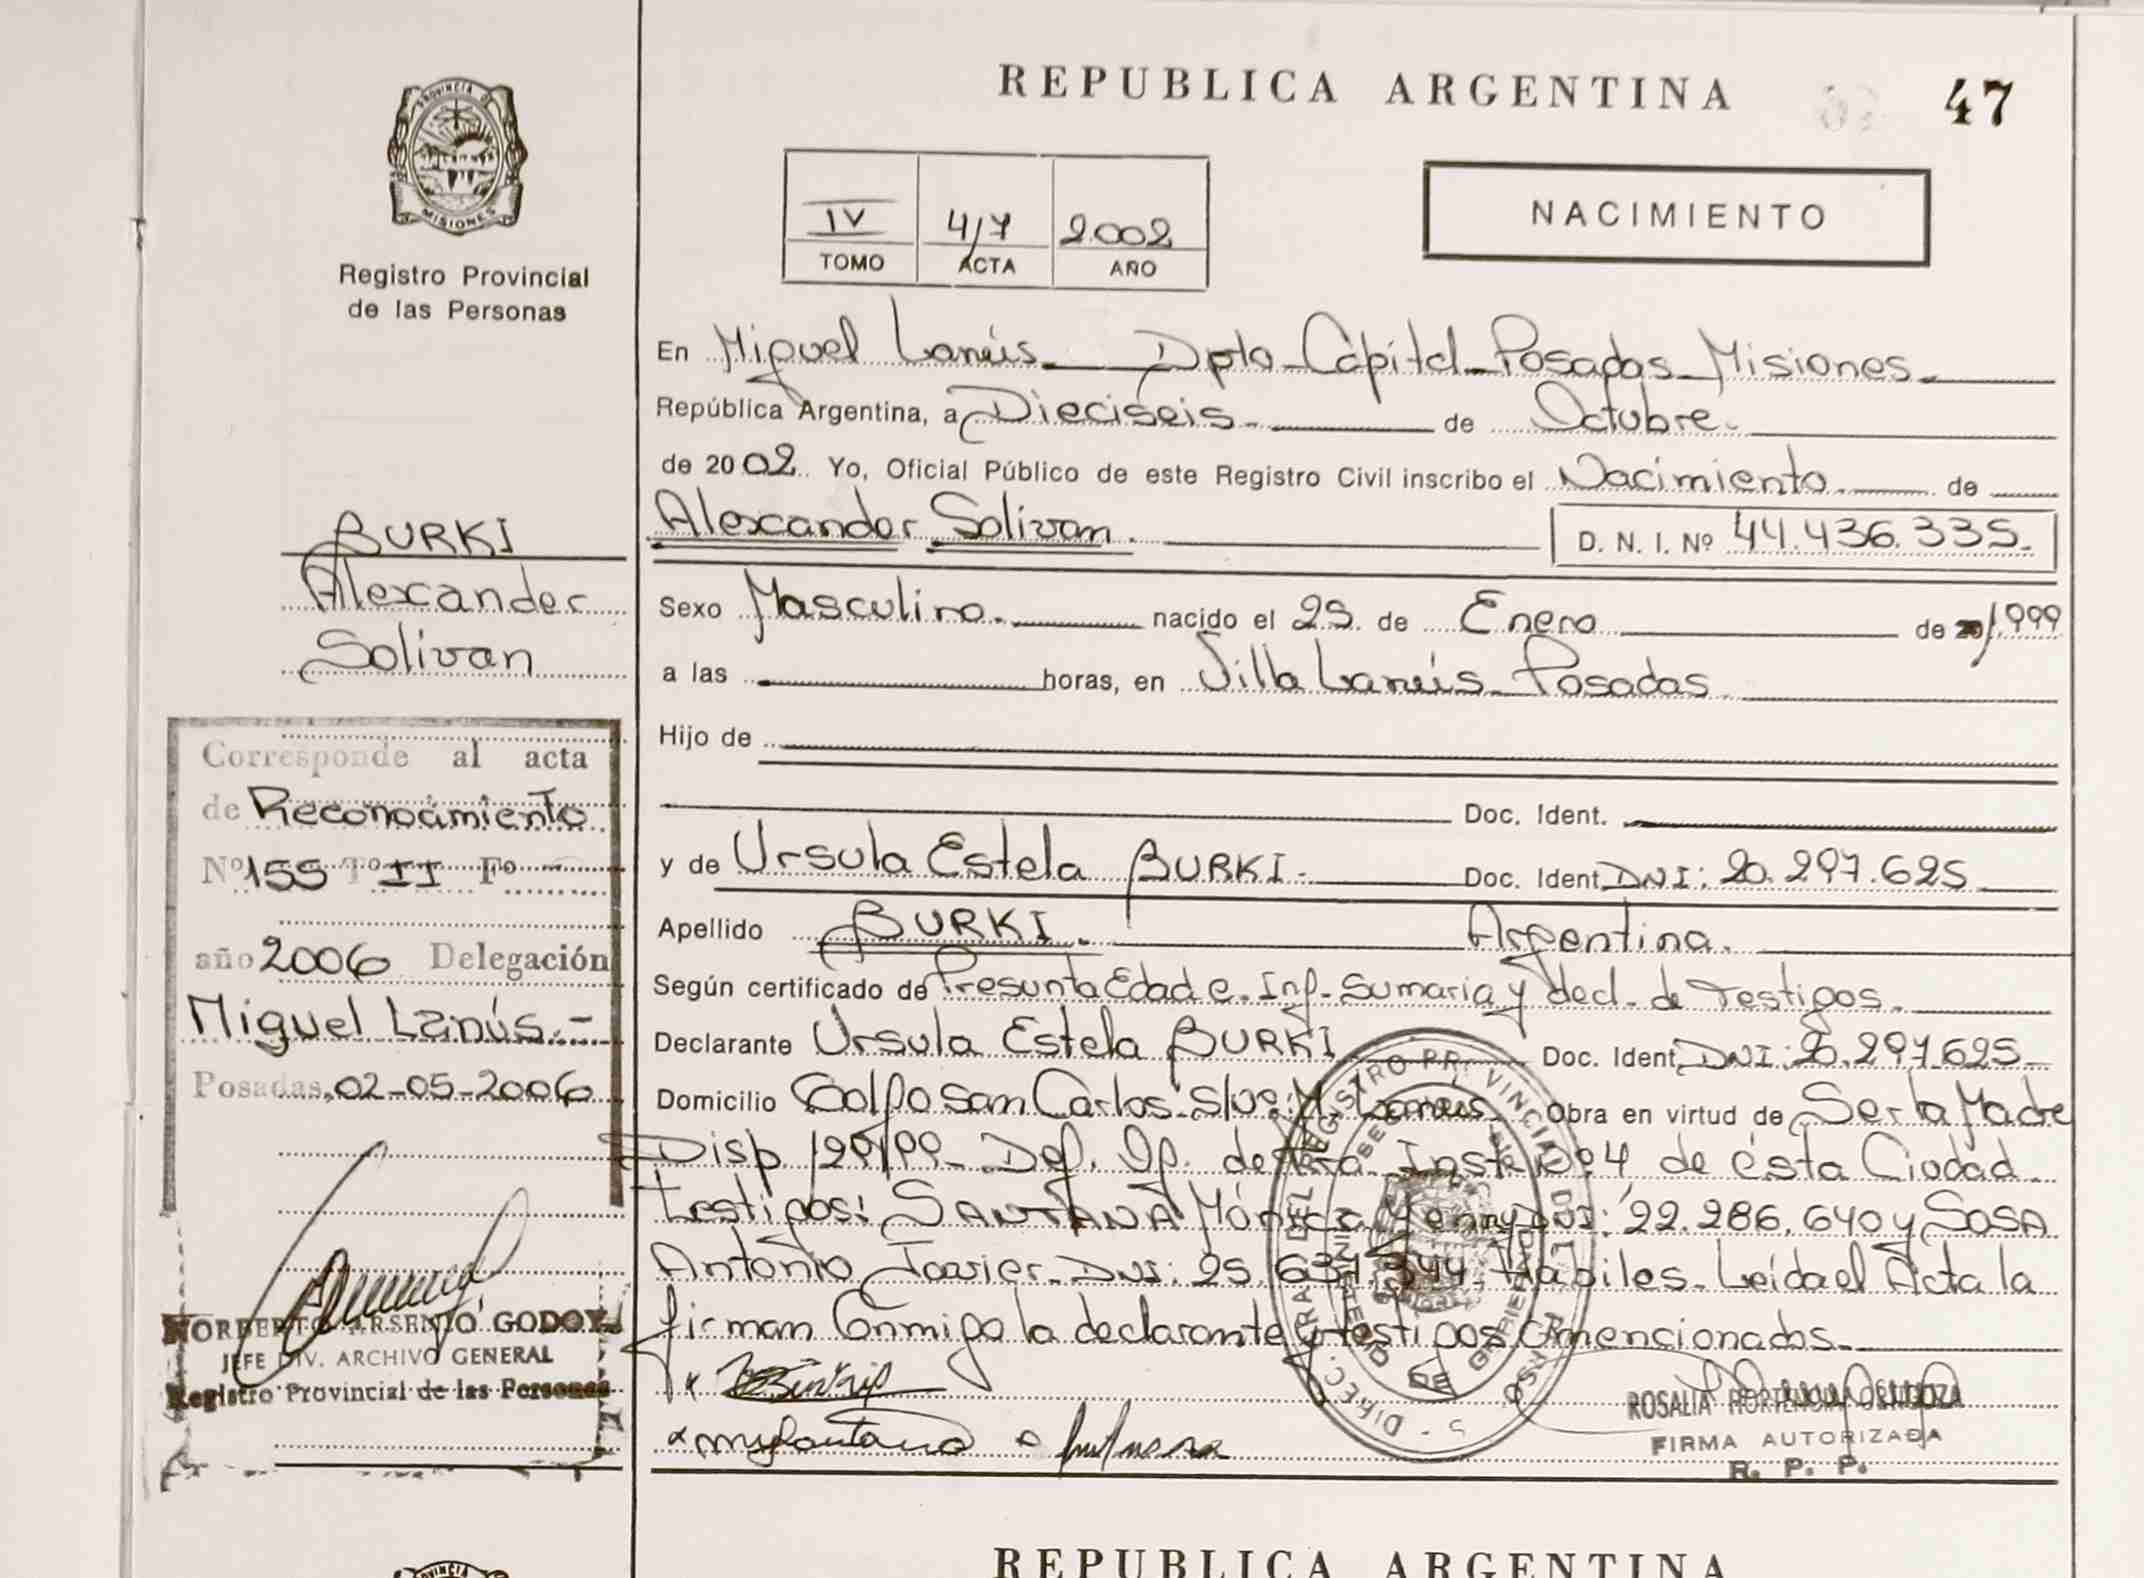 REPUBLICA ARGENTINA
47
PROVINCIA DE
MISIONES
Registro Provincial
de las Personas
IV 4/7 2.002
TOMO ACTA AÑO
NACIMIENTO
En Miguel Lanús Dpto Capital Posadas Misiones
República Argentina, a Dieciseis de Octubre
de 2002 Yo, Oficial Público de este Registro Civil inscribo el Nacimiento de
Alexander Solivan. D. N. I. Nº 44.436.335.
Sexo Masculino. nacido el 25 de Enero de 1.999
a las horas, en Villa Lanús Posadas
Hijo de
Doc. Ident.
y de Ursula Estela BURKI. Doc. Ident. DNI: 20.297.625
Apellido BURKI. Argentina.
Según certificado de Presunta Edad e Inf. Sumaria y decl. de Testigos.
Declarante Ursula Estela BURKI Doc. Ident. DNI: 20.297.625
Domicilio Golfo San Carlos S/Nº M. Lanús Obra en virtud de Ser la Madre
Disp 120/99 Def. Of. de Instr Nº 4 de ésta Ciudad.
Testigos: SANTANA Mónica Yenny DNI: 22.286.640 y SOSA
Antonio Javier DNI: 25.637.344 Habiles Leída el Acta la
firman Conmigo la declarante y testigos mencionados.
ROSALIA HORTENCIA
FIRMA AUTORIZADA
R. P. P.
BURKI
Alexander
Solivan
Corresponde al acta
de Reconocimiento
Nº 155 Tº II Fº
año 2006 Delegación
Miguel Lanús.-
Posadas, 02-05-2006
NORBERTO ARSENIO GODOY
JEFE DIV. ARCHIVO GENERAL
Registro Provincial de las Personas
REPUBLICA ARGENTINA